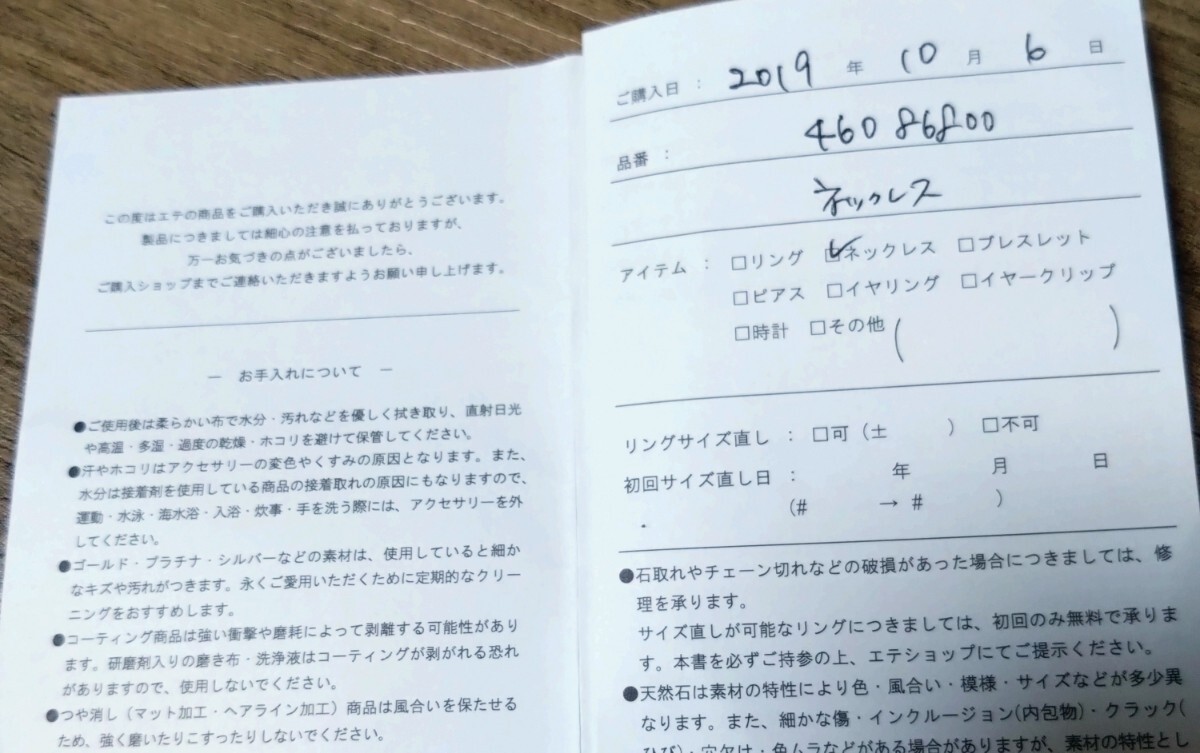 この度はエテの商品をご購入いただき誠にありがとうございます。
製品につきましては細心の注意を払っておりますが、
万一お気づきの点がございましたら、
ご購入ショップまでご連絡いただきますようお願い申し上げます。
― お手入れについて ―
●ご使用後は柔らかい布で水分・汚れなどを優しく拭き取り、直射日光
や高温・多湿・過度の乾燥・ホコリを避けて保管してください。
●汗やホコリはアクセサリーの変色やくすみの原因となります。また、
水分は接着剤を使用している商品の接着取れの原因にもなりますので、
運動・水泳・海水浴・入浴・炊事・手を洗う際には、アクセサリーを外
してください。
●ゴールド・プラチナ・シルバーなどの素材は、使用していると細か
なキズや汚れがつきます。永くご愛用いただくために定期的なクリー
ニングをおすすめします。
●コーティング商品は強い衝撃や磨耗によって剥離する可能性があり
ます。研磨剤入りの磨き布・洗浄液はコーティングが剥がれる恐れ
がありますので、使用しないでください。
●つや消し（マット加工・ヘアライン加工）商品は風合いを保たせる
ため、強く磨いたりこすったりしないでください。
ご購入日 : 2019 年 10 月 6 日
品番 : 460 86800
ネックレス
アイテム : □リング ☑ネックレス □ブレスレット
□ピアス □イヤリング □イヤークリップ
□時計 □その他 ( )
リングサイズ直し : □可（士 ） □不可
初回サイズ直し日 : 年 月 日
(# → # )
●石取れやチェーン切れなどの破損があった場合につきましては、修
理を承ります。
サイズ直しが可能なリングにつきましては、初回のみ無料で承りま
す。本書を必ずご持参の上、エテショップにてご提示ください。
●天然石は素材の特性により色・風合い・模様・サイズなどが多少異
なります。また、細かな傷・インクルージョン(内包物)・クラック(
ひび)・穴欠け・色ムラなどがある場合がありますが、素材の特性とし